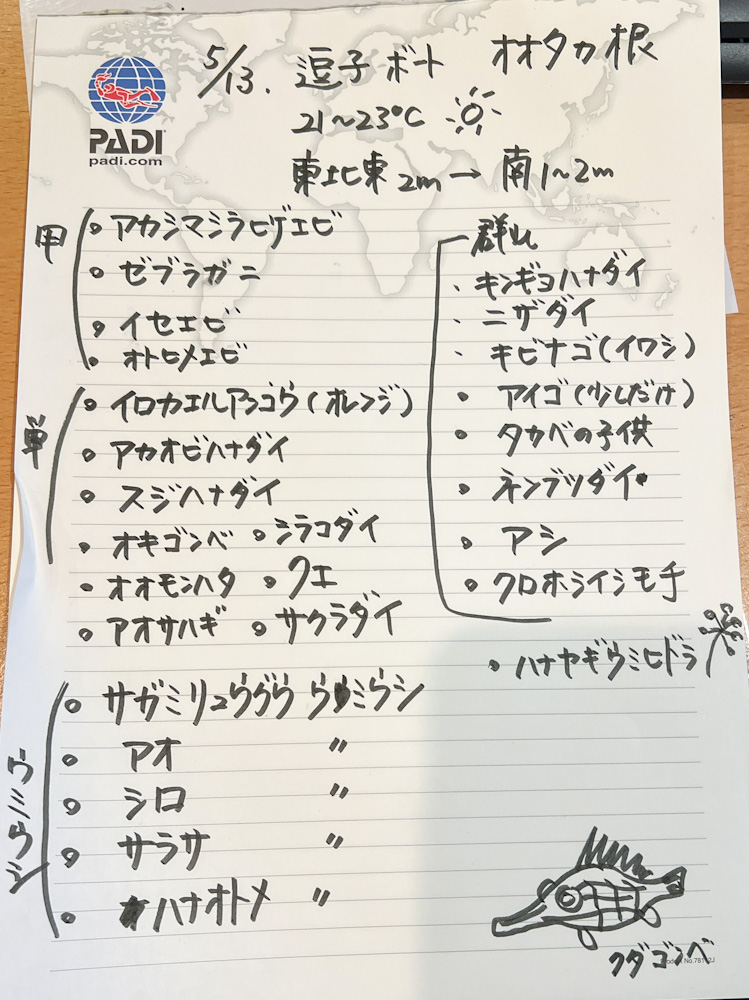 5/13. 逗子ボート オオタカ根
PADI
padi.com
21~23℃
東北東 2m → 南 1~2m
甲
。アカシマシラヒゲエビ
。ゼブラガニ
。イセエビ
。オトヒメエビ
単
。イロカエルアンコウ(オレンジ)
。アカオビハナダイ
。スジハナダイ
。オキゴンベ 。シラコダイ
。オオモンハタ 。クエ
。アオサハギ 。サクラダイ
ウミウシ
。サガミリュウグウ ウミウシ
。アオ 〃
。シロ 〃
。サラサ 〃
。ハナオトメ 〃
群れ
・キンギョハナダイ
・ニザダイ
・キビナゴ(イワシ)
・アイゴ(少しだけ)
・タカベの子供
・ネンブツダイ
・アジ
・クロホシイシモチ
・ハナヤギウミヒドラ
クダゴンベ